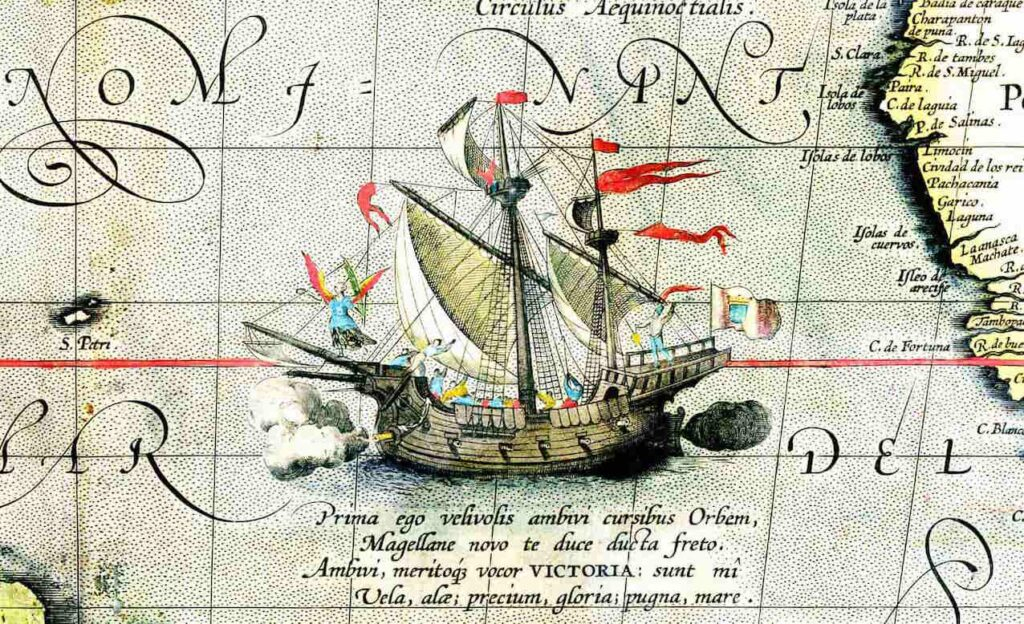 Circulus Aequinoctialis.
NOMI=NANT
Isola de la
plata.
Badia de caraque
Charapanton
de puna
R. de S. Iag
S. Clara.
R. de tambes
R. de S. Miguel.
Isola de
lobos
Paira.
C. de laguia
P. de Salinas.
Isolas de lobos
Limocin
Cividad de los rei
Pachacania
Garico.
Laguna
Isolas de
cuervos.
Laanasca
Machate.
Isleo de
arecife
Tambopa
R. de bue
C. de Fortuna
S. Petri.
C. Blanc
LAR
DEL
Prima ego velivolis ambivi cursibus Orbem,
Magellane novo te duce ducta freto.
Ambivi, meritoq3 vocor VICTORIA: sunt mî
Vela, alæ; precium, gloria; pugna, mare.